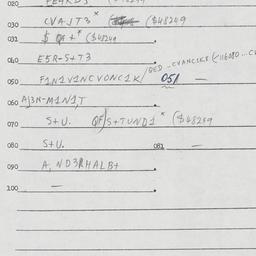 020 FE4RDJ
030 CVAJT3* ($48249
031 $ * ($48249
040 E5R-S+T3
050 F1N1V1NCV0NC1K/ 051 —
060 A)3N-M1N1,T
070 S+U. QF)S+TUND1* ($48249
080 S+U. 081 —
090 A, ND3RHALB+
100 —